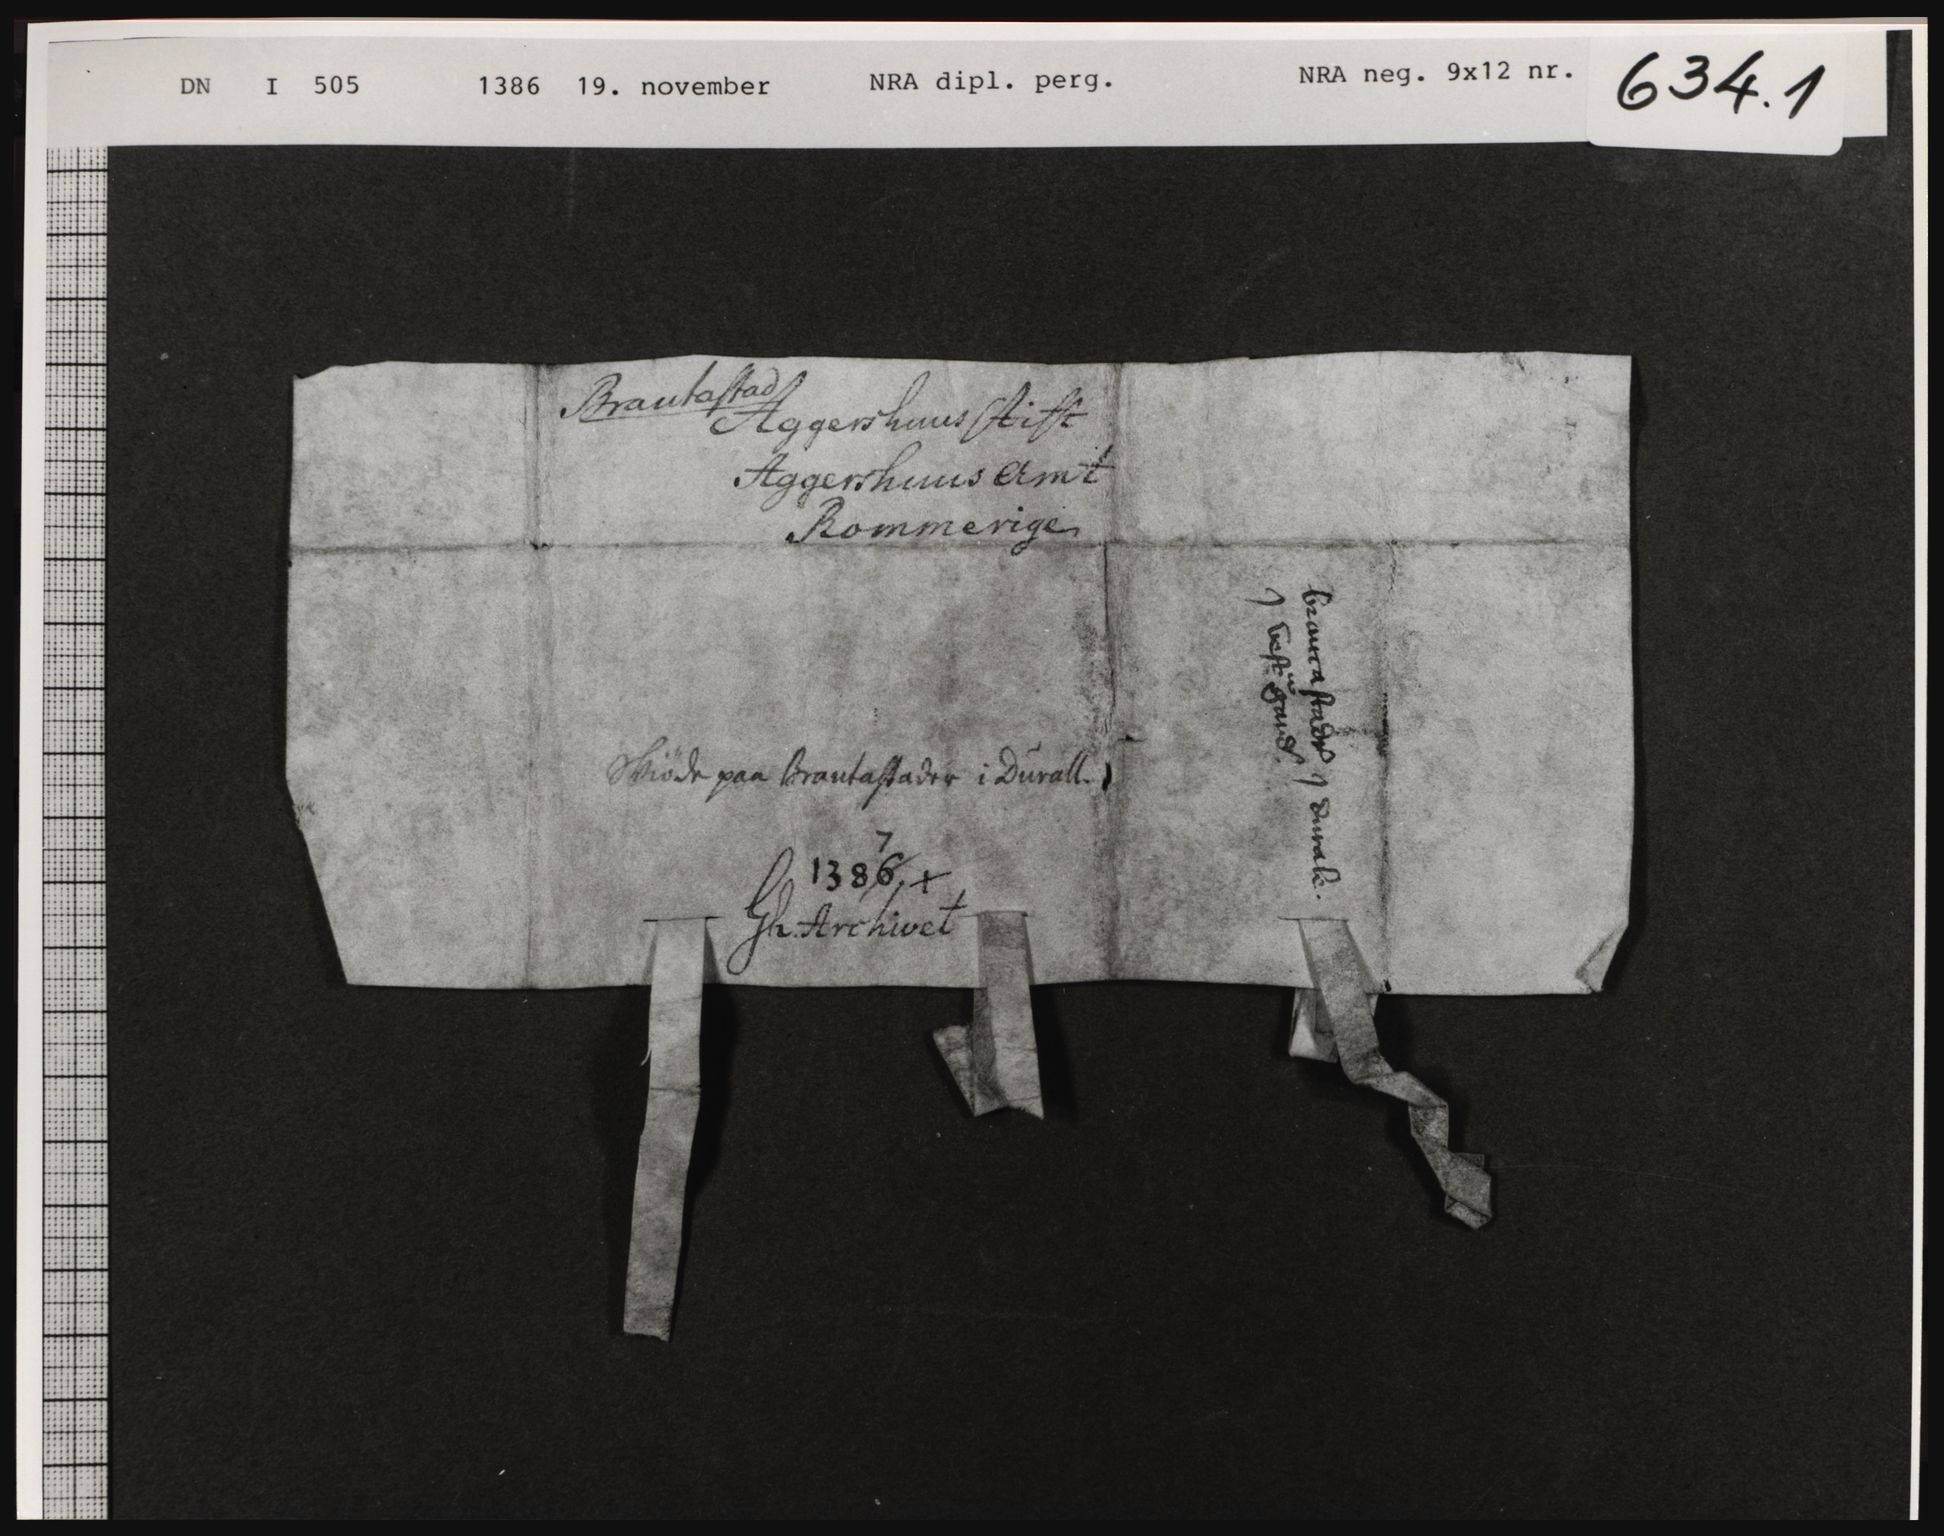 DN I 505 1386 19. november NRA dipl. perg. NRA neg. 9x12 nr. 634.1
Brautastad
Aggershuus Stift
Aggershuus Amt
Rommerige
brautastadr j durale.
j vest gard
Skiöde paa Brautastader i Durall.
7
1386. +
Gh. Archivet